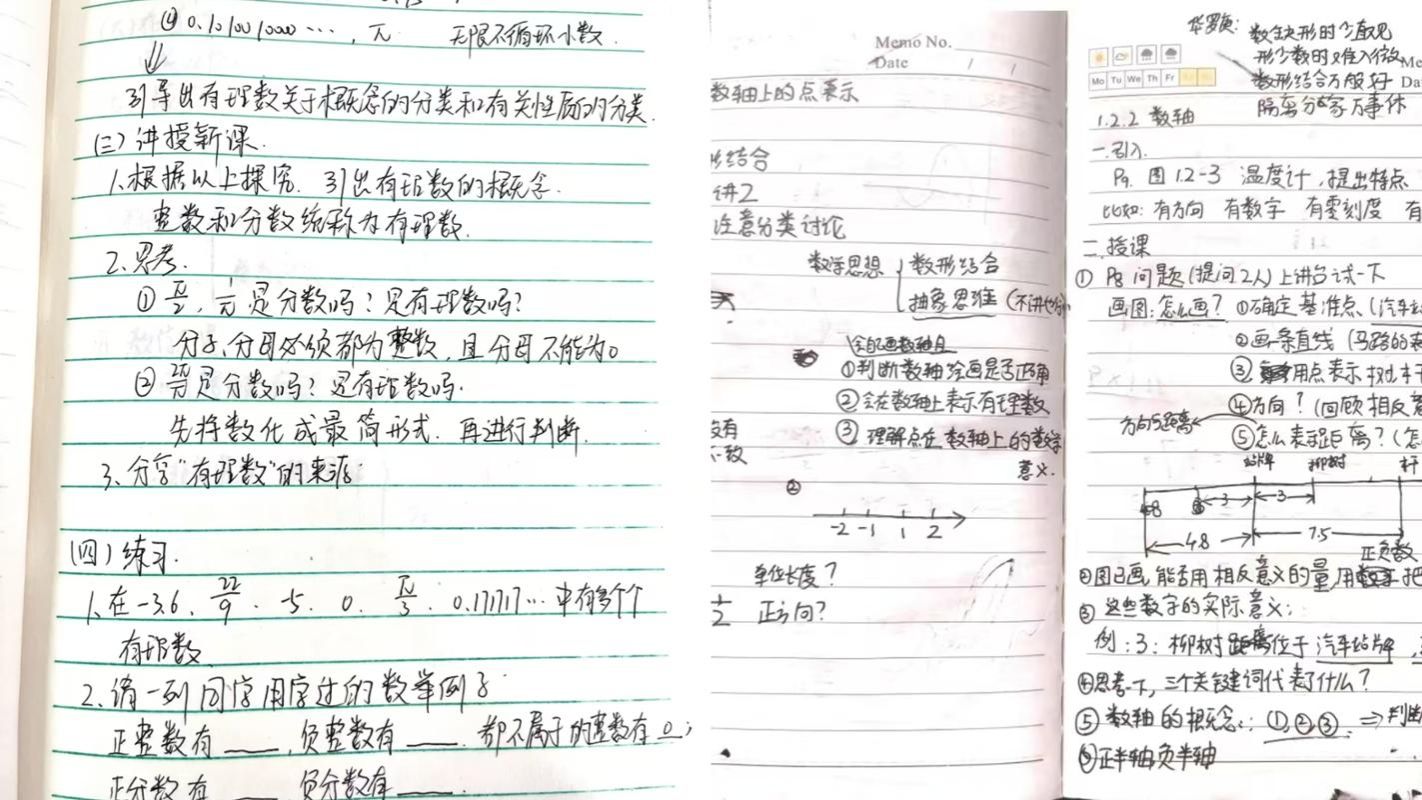 ④ 0.1010010000…, 元 无限不循环小数.
引导出有理数关于概念的分类和有关性质的分类.
(三) 讲授新课.
1.根据以上探究. 引出有理数的概念.
整数和分数统称为有理数.
2.思考.
① π/2, 1/π 是分数吗? 是有理数吗?
分子、分母必须都为整数, 且分母不能为0
② 是分数吗? 是有理数吗.
先将数化成最简形式. 再进行判断.
3.分享"有理数"的来源
(四) 练习.
1.在 -3.6, 22/9, -5, 0, π/3, 0.171717… 中有多个
有理数.
2.请一列同学用学过的数举例子
正整数有 ____, 负整数有 ____. 都不属于的整数有 0;
正分数有 ____, 负分数有 ____.
Memo No.
Date / /
数轴上的点表示
形结合
讲2
注意分类讨论
数学思想 { 数形结合
抽象思维 (不讲也行
会自己画数轴且
①判断数轴绘画是否正确
②会在数轴上表示有理数
没有 ③ 理解点在数轴上的数学
不致 意义.
②
-2 -1 1 2
单位长度?
1/2 正方向?
华罗庚: 数缺形时少直观
形少数时难入微
数形结合万般好
隔离分家万事休
Mo Tu We Th Fr
1.2.2 数轴
一.引入.
P9. 图1.2-3 温度计, 提出特点
比如: 有方向 有数字 有零刻度 有
二.授课
① P8 问题 (提问2人) 上讲台试一下
画图: 怎么画? ①确定基准点 (汽车站
②画一条直线 (马路的
③ 用点表示树木
④方向? (回顾相反意
方向与距离
⑤怎么表示距离? (怎
站牌 柳树 杆
4.8 3 3
4.8 7.5
正负数
②图已画, 能否用相反意义的量, 用 把
③ 这些数字的实际意义:
例: 3: 柳树 位于汽车站牌,
④思考一下, 三个关键词代表了什么?
⑤ 数轴的概念: ①②③ ⇒判断
⑥正半轴负半轴